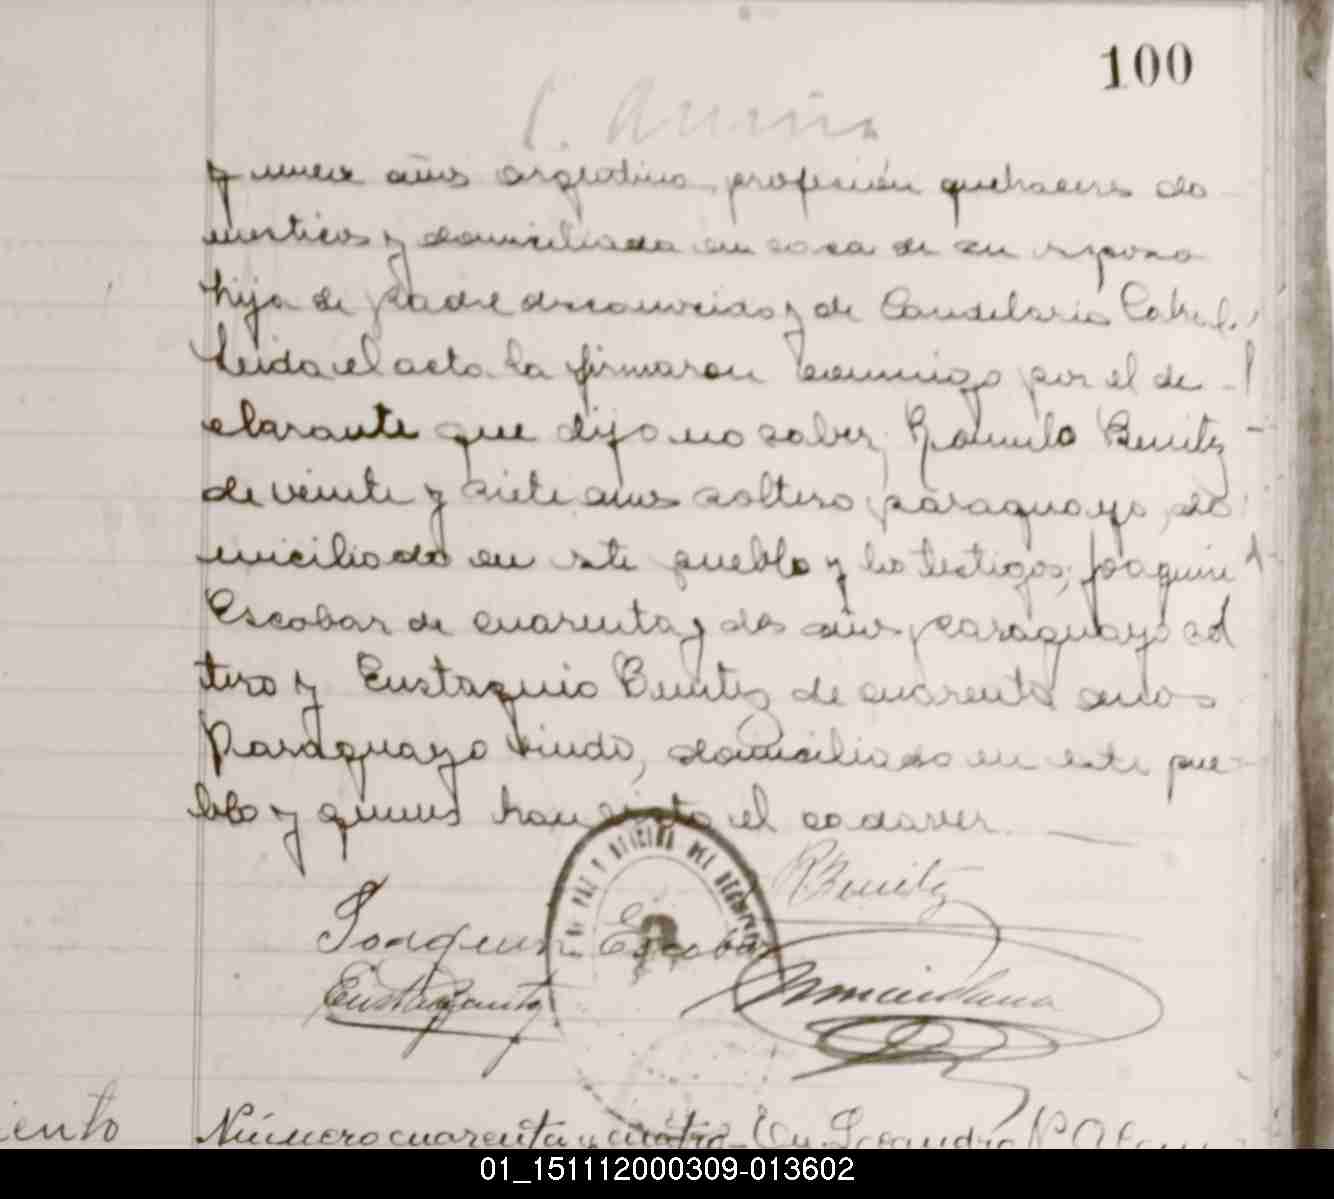 100
y nueve años argentina, profesión quehaceres do
mesticos y domiciliada en casa de su esposo
hija de padre desconocido y de Candelaria Cabral.
Leida el acta la firmaron conmigo por el de-
clarante que dijo no saber, Romulo Benitez
de veinte y siete años soltero, paraguayo, do
miciliado en este pueblo y los testigos, Joaquin
Escobar de cuarenta y dos años, paraguayo sol
tero y Eustaquio Benitez de cuarenta años
Paraguayo viudo, domiciliado en este pue-
blo y quienes han visto el cadaver.
R Benitez
DE PAZ Y OFICINA DEL REGISTRO
Joaquin Escobar
iento
Número cuarenta y cuatro En Leandro N Alem
01_151112000309-013602